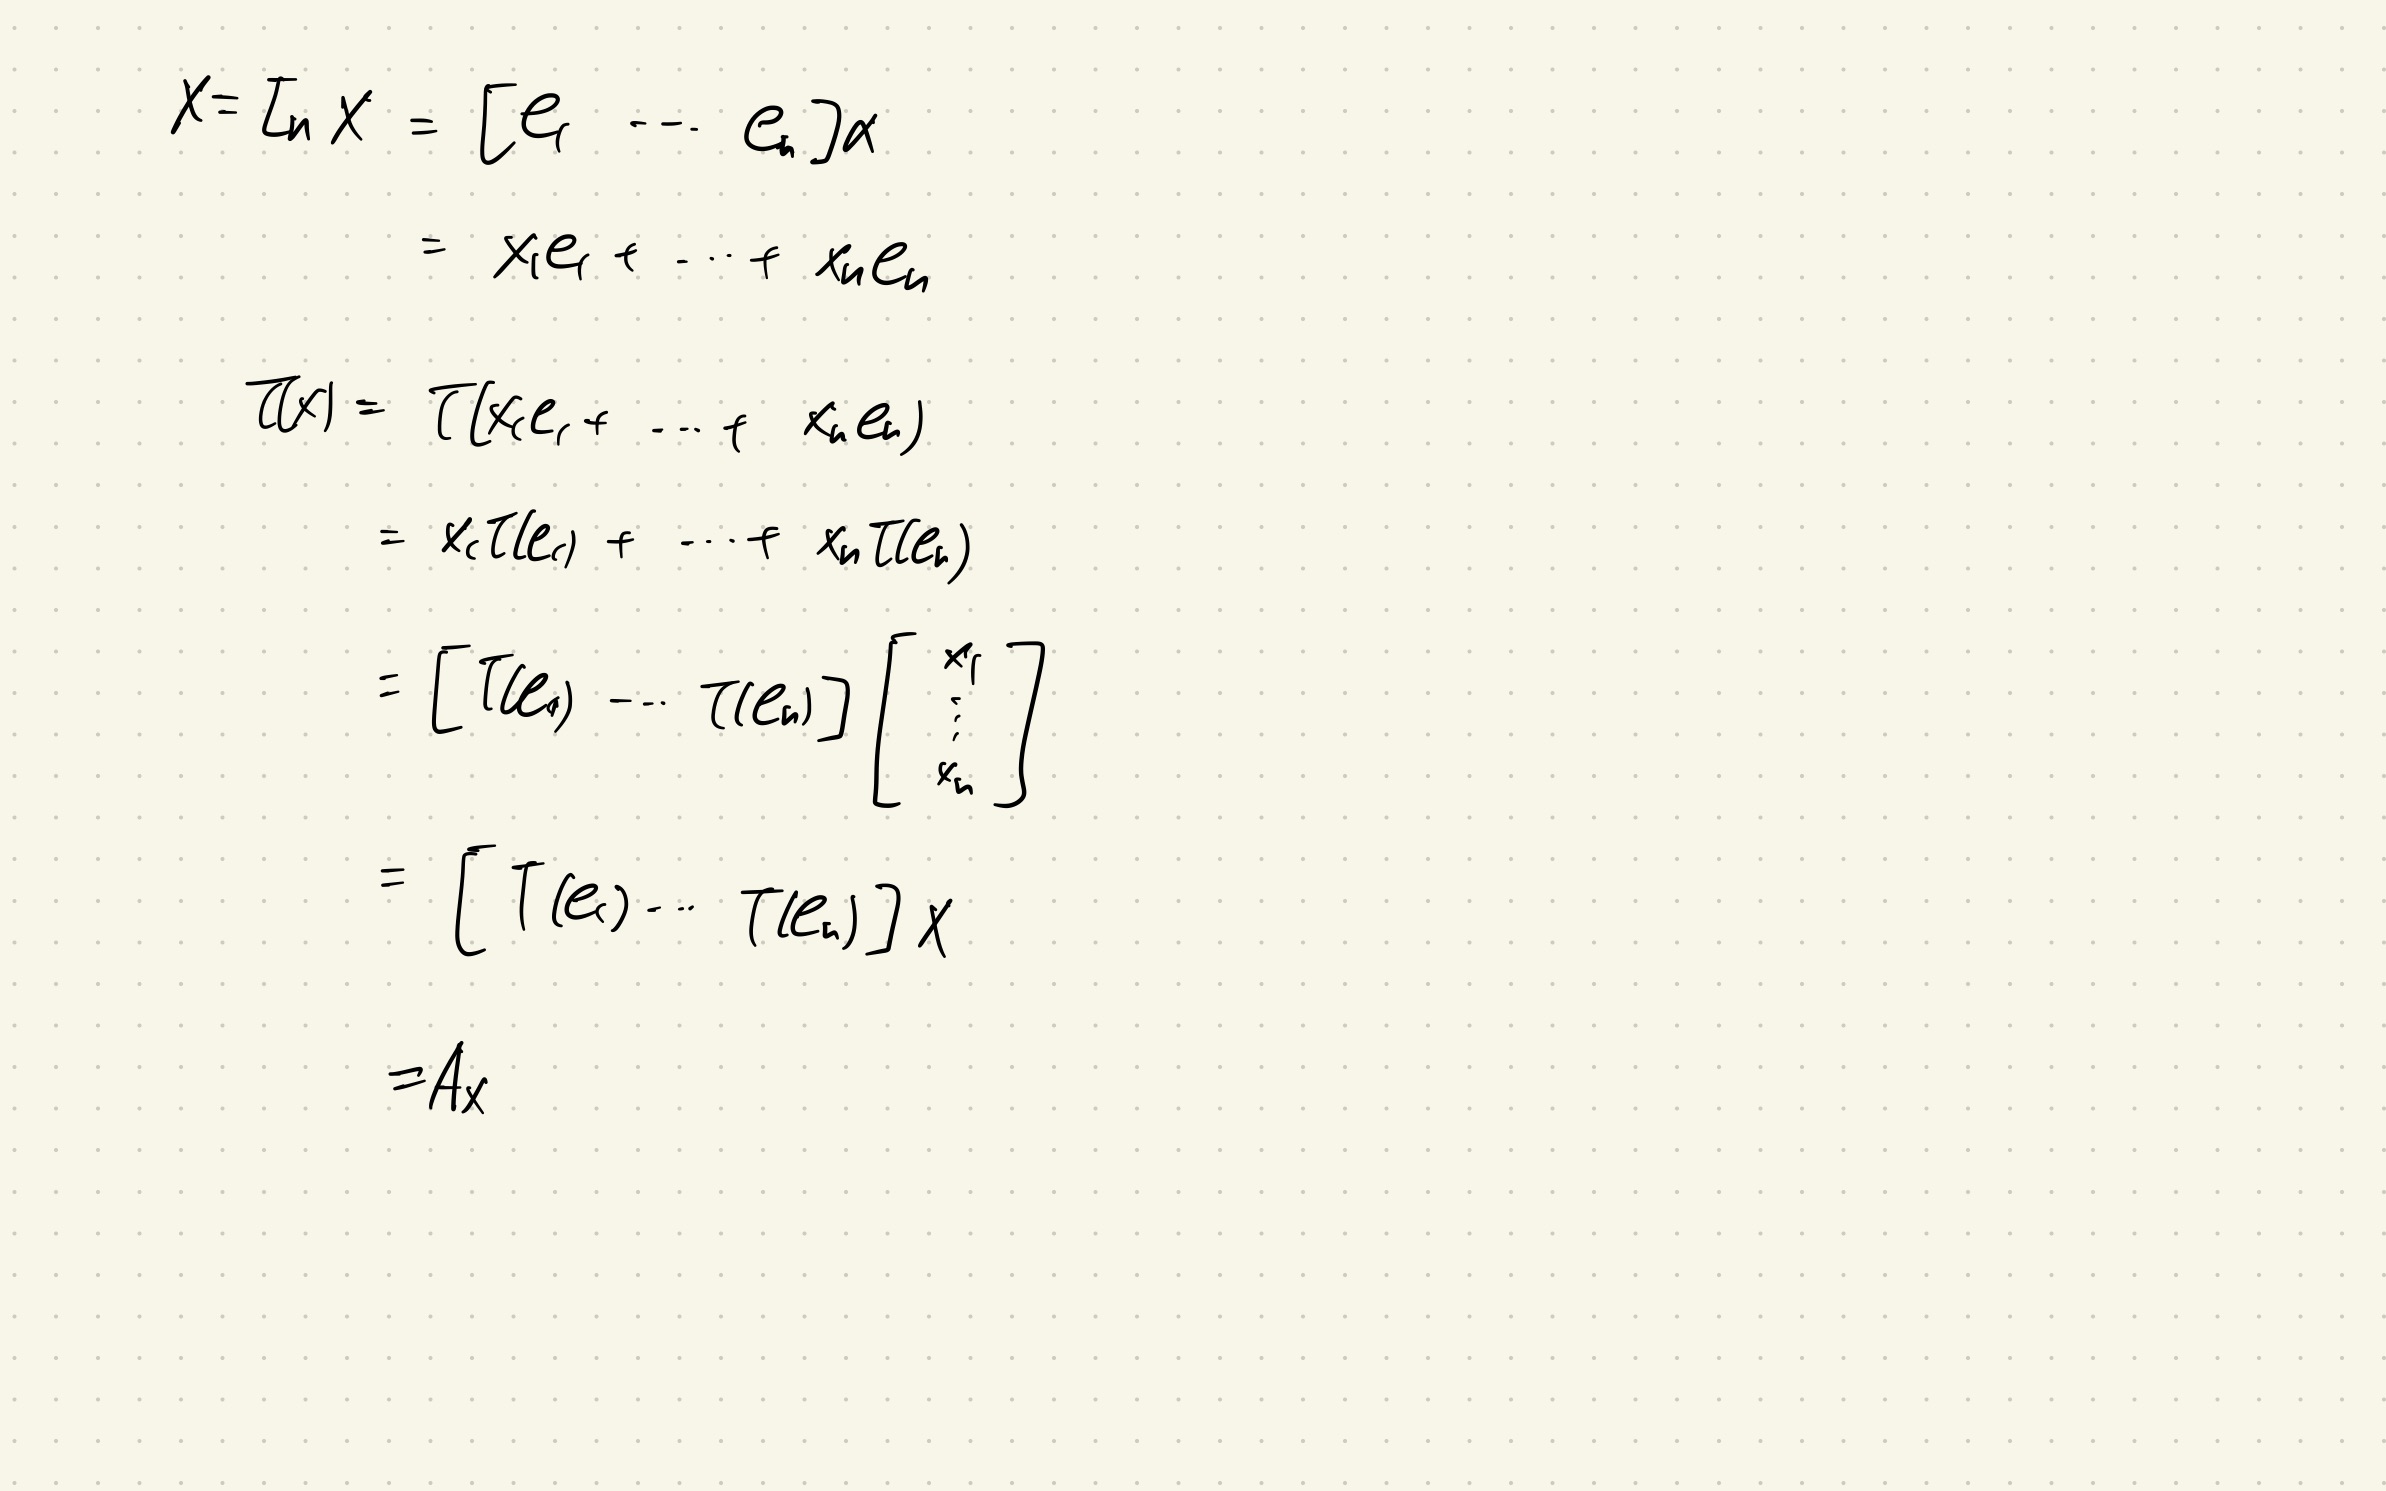 x = Iₙ x = [e₁ ... eₙ]x
= x₁e₁ + ... + xₙeₙ
T(x) = T(x₁e₁ + ... + xₙeₙ)
= x₁T(e₁) + ... + xₙT(eₙ)
= [T(e₁) ... T(eₙ)] [x₁ ⋮ xₙ]
= [T(e₁) ... T(eₙ)] x
= Ax